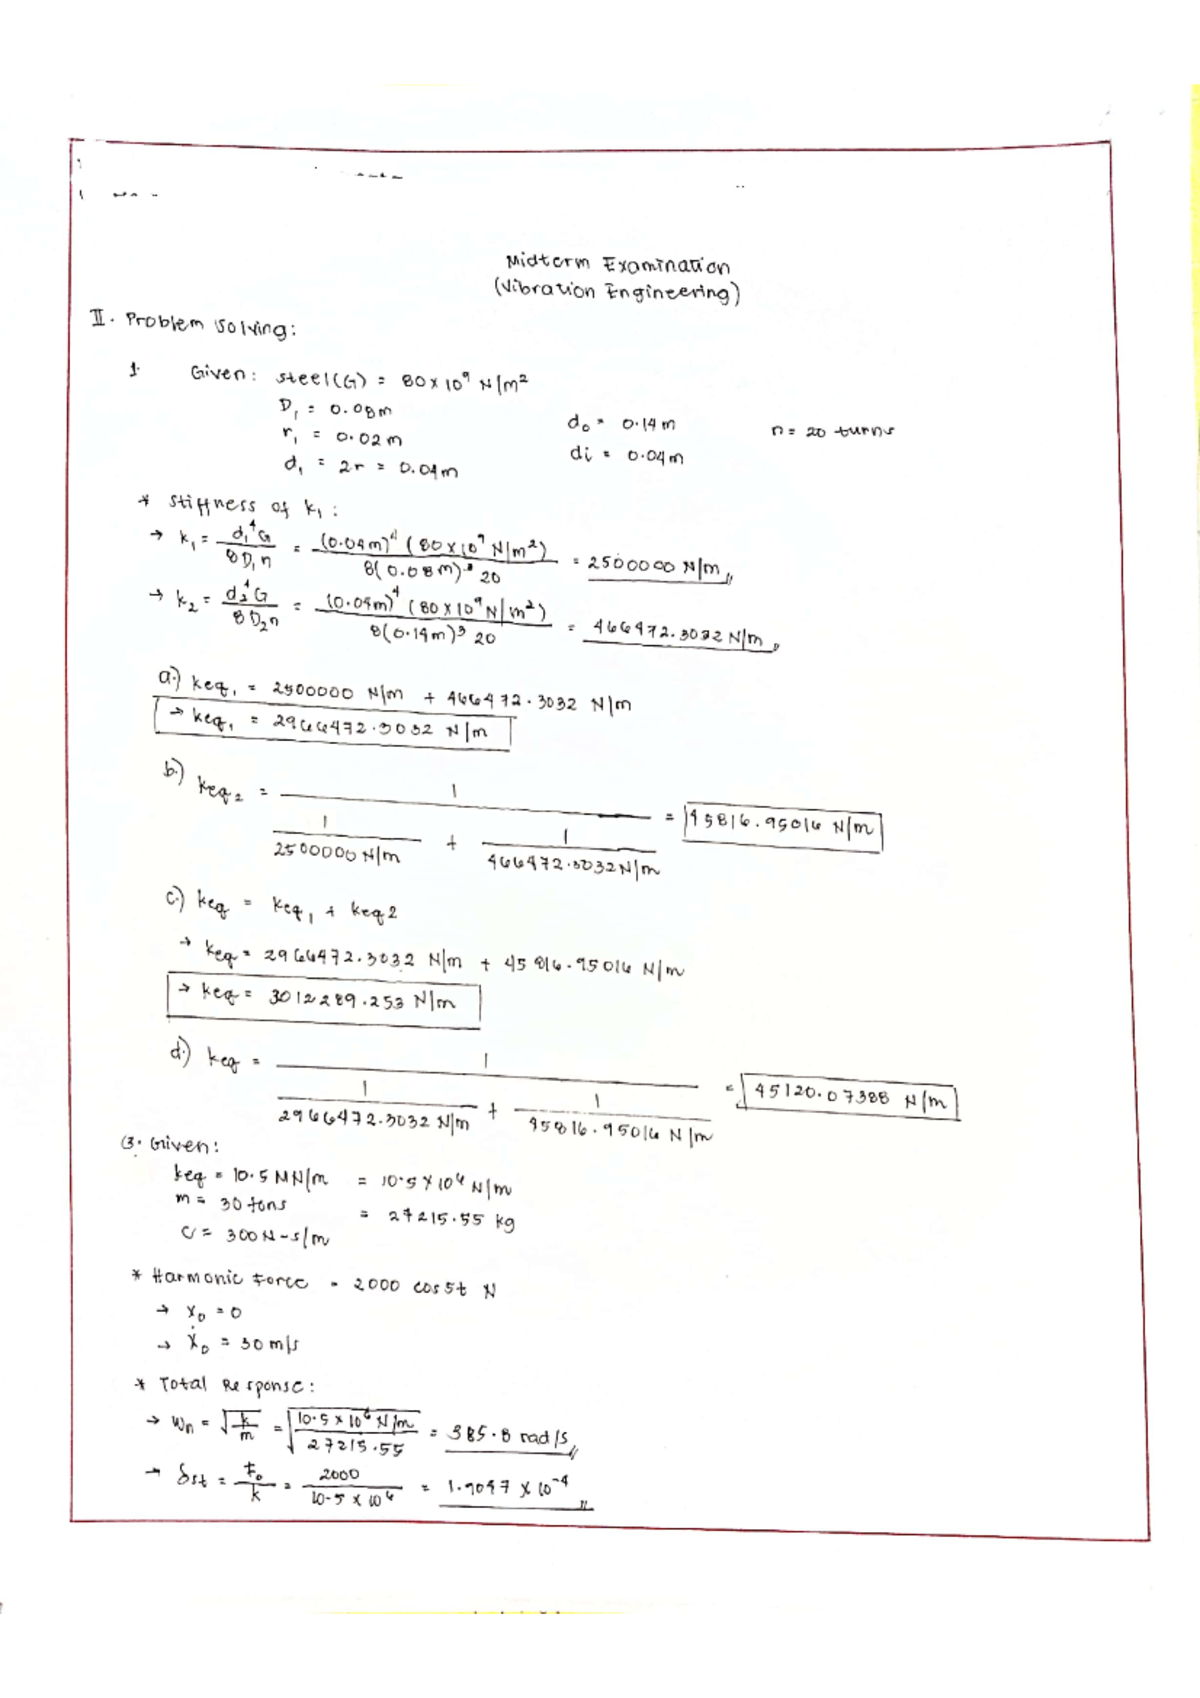 Midterm Examination
(Vibration Engineering)
II. Problem Solving:
1. Given: steel(G) = 80x10⁹ N/m²
D₁ = 0.08m
r₁ = 0.02m
d₁ = 2r = 0.04m
d₀ = 0.14m
di = 0.04m
n = 20 turns
* Stiffness of k₁:
→ k₁ = d₁⁴G / 8D₁n = (0.04m)⁴(80x10⁹ N/m²) / 8(0.08m)³ 20 = 2500000 N/m
→ k₂ = d₂⁴G / 8D₂n = (0.04m)⁴(80x10⁹ N/m²) / 8(0.14m)³ 20 = 466472.3032 N/m
a.) keq₁ = 2500000 N/m + 466472.3032 N/m
→ keq₁ = 2966472.3032 N/m
b.) keq₂ = 1 / (1 / 2500000 N/m + 1 / 466472.3032 N/m) = 45816.95016 N/m
c.) keq = keq₁ + keq2
→ keq = 2966472.3032 N/m + 45816.95016 N/m
→ keq = 3012289.253 N/m
d.) keq = 1 / (1 / 2966472.3032 N/m + 1 / 45816.95016 N/m) = 45120.07388 N/m
3. Given:
keq = 10.5 MN/m = 10.5 x 10⁶ N/m
m = 30 tons = 27215.55 kg
c = 300 N-s/m
* Harmonic Force = 2000 cos5t N
→ x₀ = 0
→ ẋ₀ = 30 m/s
* Total Response:
→ Wn = √(k/m) = √(10.5 x 10⁶ N/m / 27215.55) = 385.8 rad/s
→ δst = F₀/k = 2000 / 10.5 x 10⁶ = 1.9047 x 10⁻⁴